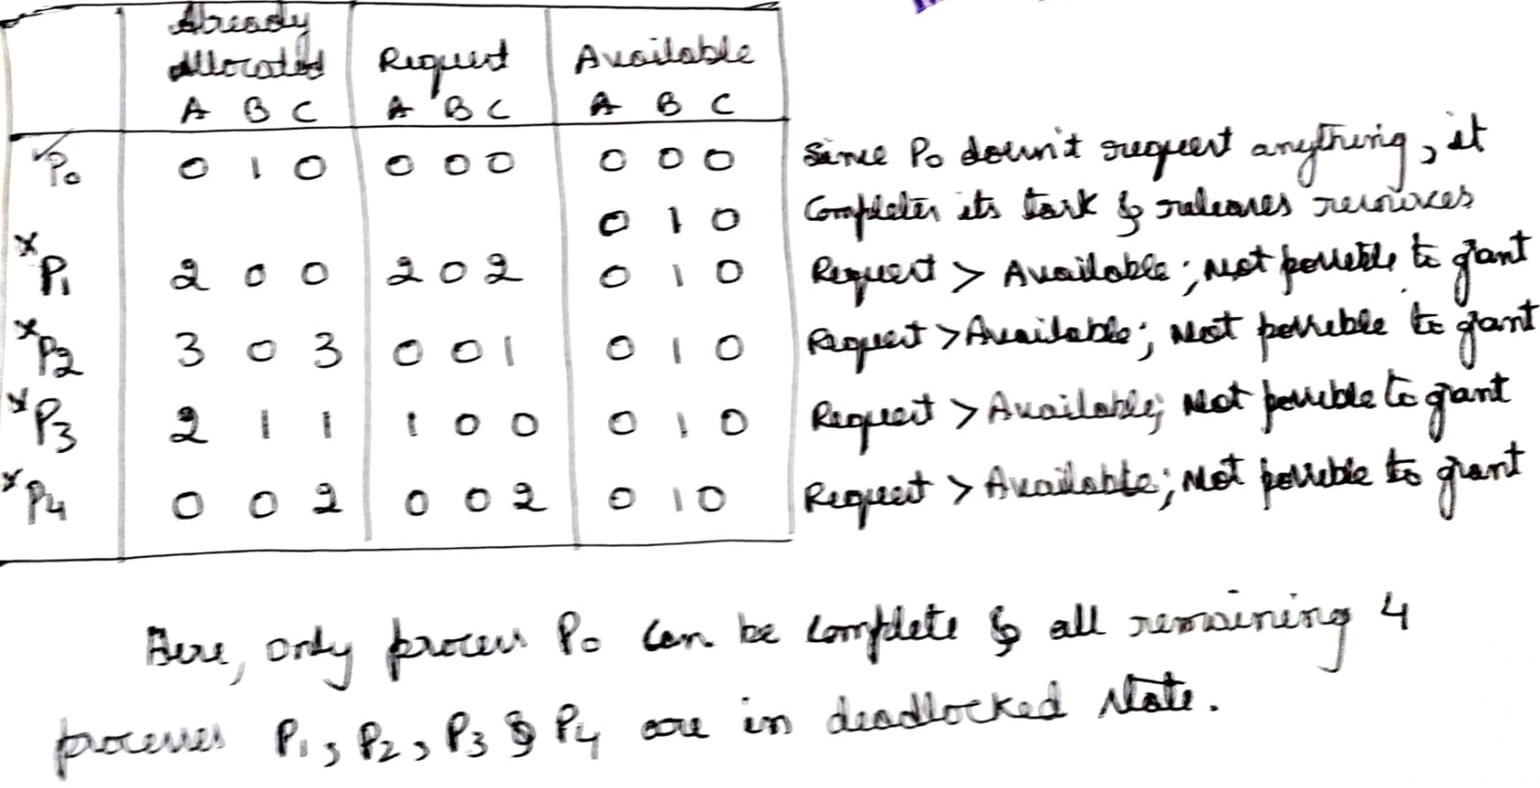 Already
allocated Request Available
A B C A B C A B C
P0 0 1 0 0 0 0 0 0 0 Since P0 doesn't request anything, it
0 1 0 completes its task & releases resources
P1 2 0 0 2 0 2 0 1 0 Request > Available; Not possible to grant
P2 3 0 3 0 0 1 0 1 0 Request > Available; Not possible to grant
P3 2 1 1 1 0 0 0 1 0 Request > Available; Not possible to grant
P4 0 0 2 0 0 2 0 1 0 Request > Available; Not possible to grant
Here, only process P0 can be complete & all remaining 4
processes P1, P2, P3 & P4 are in deadlocked state.